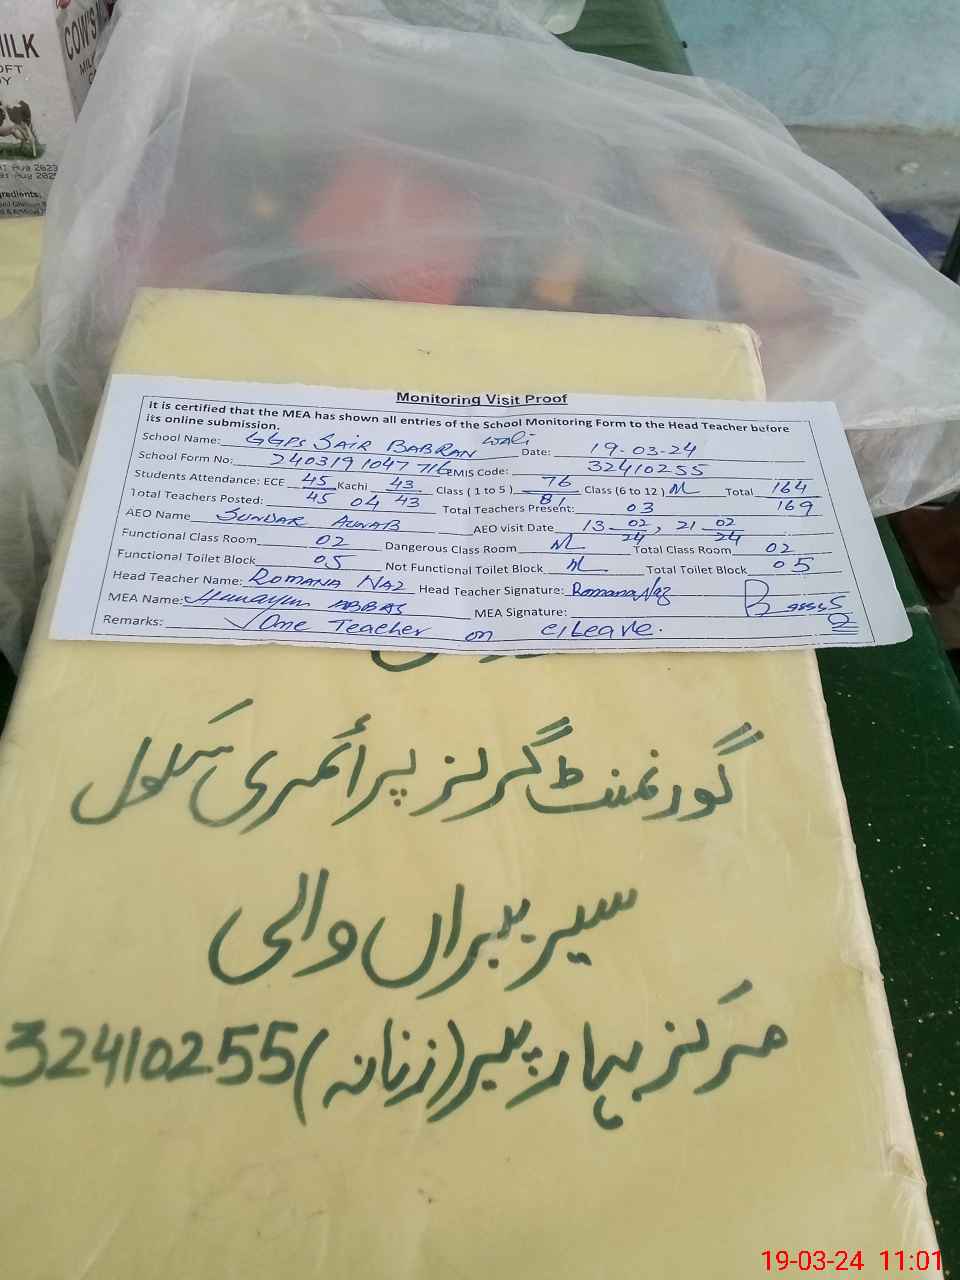 MILK
COW'S
MILK
Monitoring Visit Proof
it is certified that the MEA has shown all entries of the School Monitoring Form to the Head Teacher before
its online submission.
School Name: GGPS SAIR BABRAN wali Date: 19-03-24
School Form No: 2403191047716 EMIS Code: 32410255
Students Attendance: ECE 45/45 Kachi 43/43 Class ( 1 to 5 ) 76/81 Class (6 to 12 ) NL Total 164/169
Total Teachers Posted: 04 Total Teachers Present: 03
AEO Name AEO visit Date 13-02/24, 21-02/24
Functional Class Room 02 Dangerous Class Room NL Total Class Room 02
Functional Toilet Block 05 Not Functional Toilet Block NL Total Toilet Block 05
Head Teacher Name: ROMANA NAZ Head Teacher Signature: Romana Naz
MEA Name: Humayun ABBAS MEA Signature:
Remarks: One Teacher on C/Leave.
گورنمنٹ گرلز پرائمری سکول
سیر ببراں والی
مرکز بہار پیر (زنانہ) 32410255
19-03-24 11:01